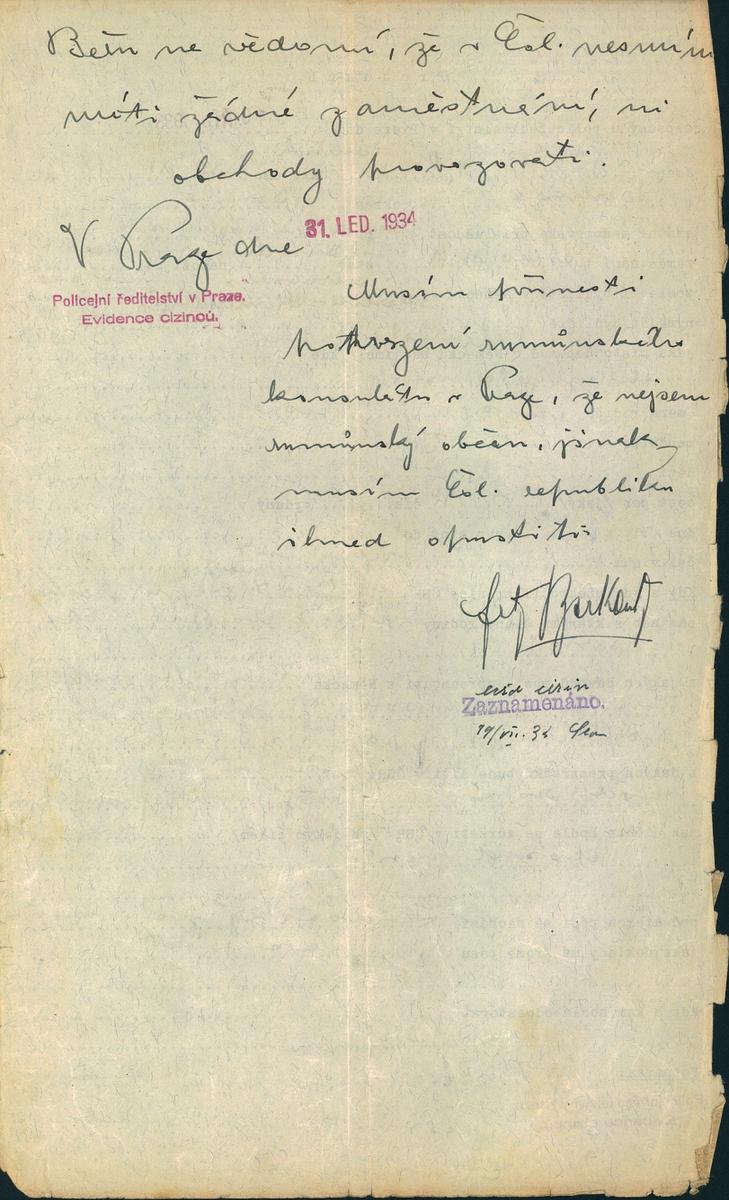 Beru na vědomí, že v Čsl. nesmím
míti žádné zaměstnání, ni
obchody provozovati.
V Praze dne 31. LED. 1934
Policejní ředitelství v Praze.
Evidence cizinců.
Musím přinesti
potvrzení rumunského
konsulátu v Praze, že nejsem
rumunský občan, jinak
musím Čsl. republiku
ihned opustiti
Zaznamenáno.